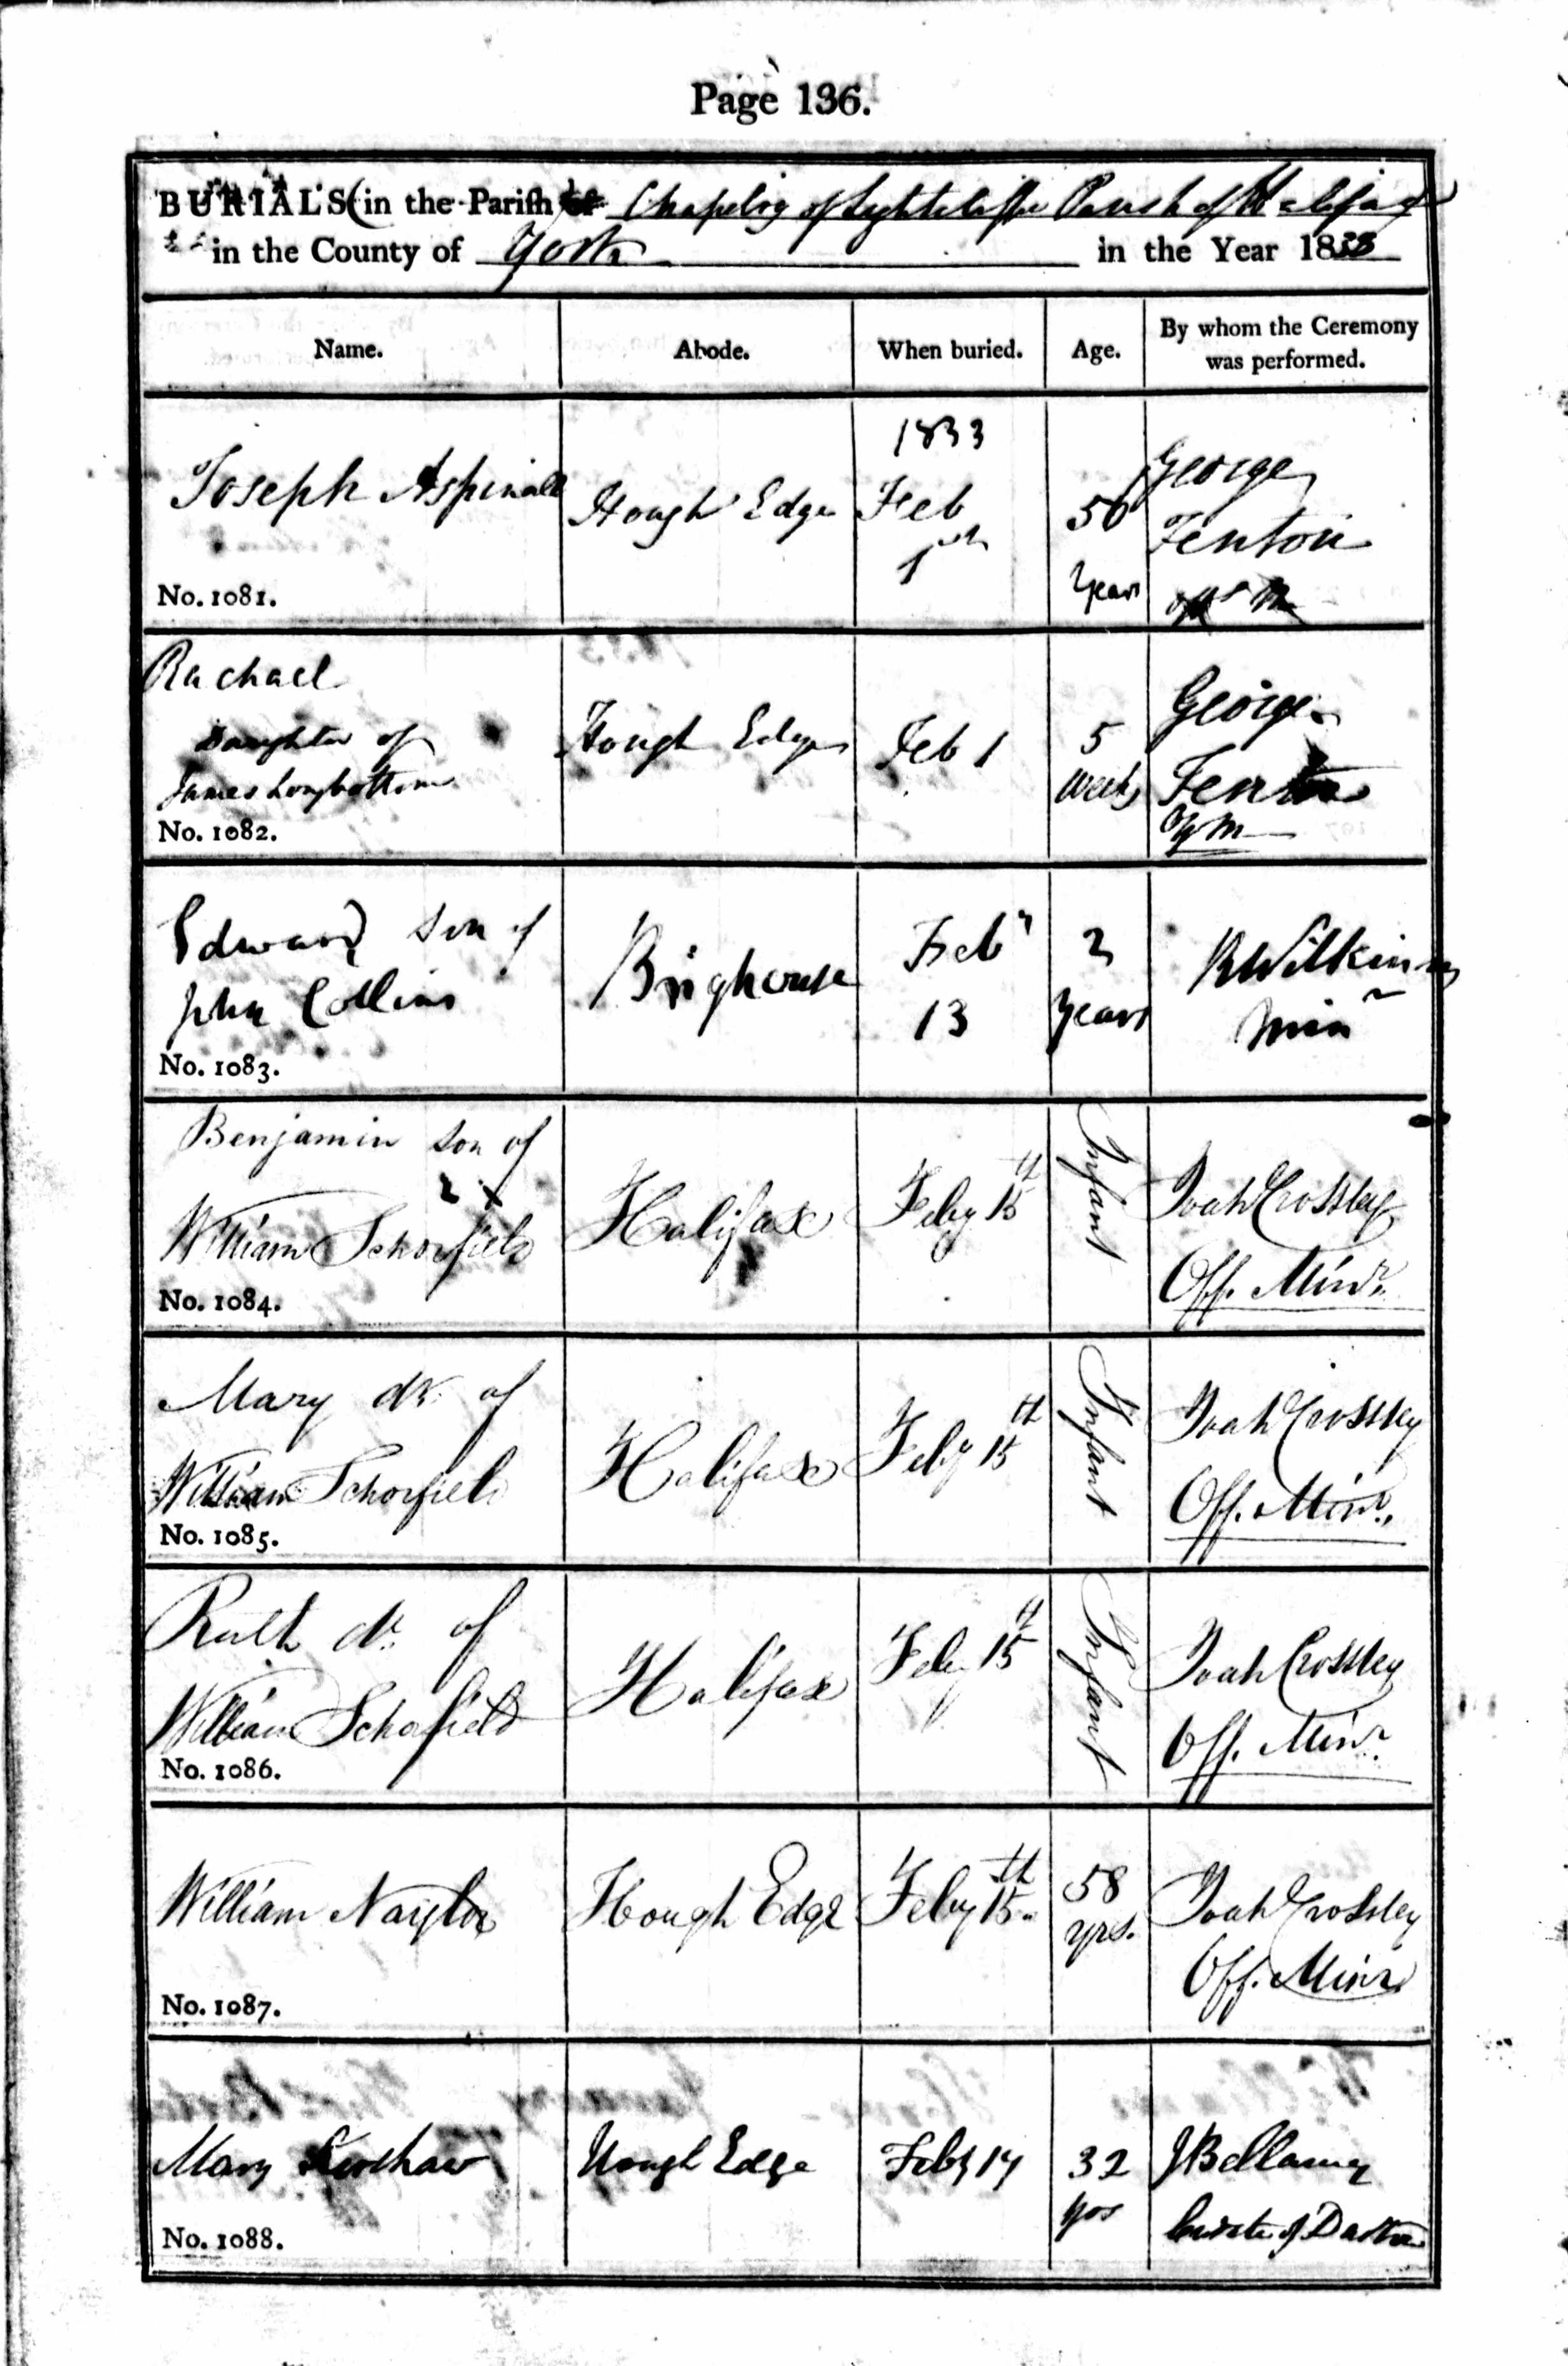 Page 136.
BURIALS in the Parish Chapelry of Lightcliffe Parish of Halifax
in the County of York in the Year 1833
Name. Abode. When buried. Age. By whom the Ceremony was performed.
Joseph Aspinall
Hough Edge
1833
Feb
1st
50
Years
George
Fenton
No. 1081.
Rachael
Daughter of
James Longbottom
Hough Edge
Feb 1
5
weeks
George
Fenton
No. 1082.
Edward son of
John Collins
Brighouse
Feby
13
2
years
R Wilkinson
Minr
No. 1083.
Benjamin son of
William Schorfield
Halifax
Feby 15th
Infant
Noah Crossley
Off. Minr.
No. 1084.
Mary dr. of
William Schorfield
Halifax
Feby 15th
Infant
Noah Crossley
Off. Minr.
No. 1085.
Ruth dr. of
William Schofield
Halifax
Feby 15th
Infant
Noah Crossley
Off. Minr.
No. 1086.
William Naylor
Hough Edge
Feby 15th
58
yrs.
Noah Crossley
Off. Minr.
No. 1087.
Mary Kershaw
Hough Edge
Feby 17
32
yrs
J Bellamy
Curate of Darton
No. 1088.